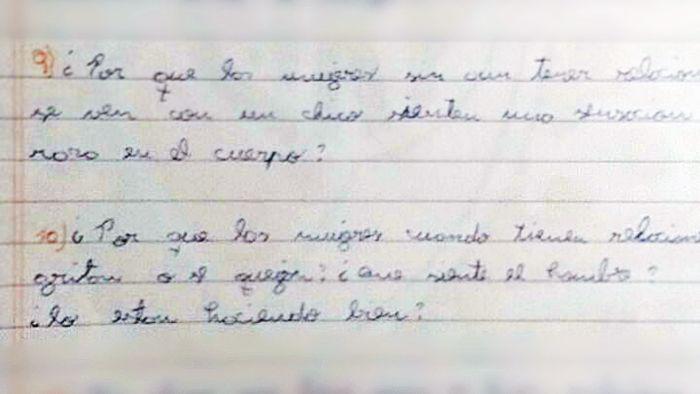 9) ¿Por que las mugres sin aun tener relacion
se ven con un chico sienten una sensacion
rara en el cuerpo?
10) ¿Por que las mugres cuando tienen relacion
gritan o se quegan? ¿Que siente el hombre?
¿lo estan haciendo bien?